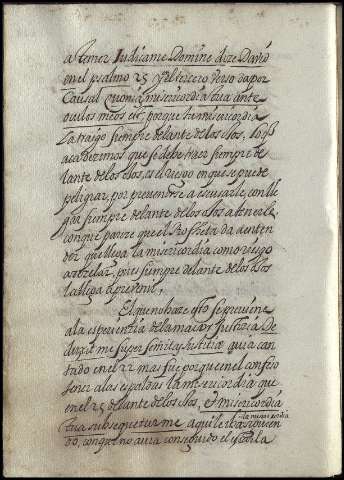 a temer Iudicame Domine dize David
en el psalmo 25 y el tercero verso da por
Causal Quoniã misericordia tua ante
oculos meos est, porque tu misericordia
la traigo siempre delante de los ojos, lo q̃
aca dezimos que se debe traer siempre de
lante de los ojos, es el riesgo en que se puede
peligrar, por prevenirse a escusarle, con lle
gar siempre delante de los ojos a tenerle,
conque pareze que el Propheta da a enten
der que lleva la misericordia como riesgo
a rezelar, pues siempre delante de los ojos
la llega a prevenir,
El que no haze esto se previene
a la esperiencia de la maior Justicia De
duxit me super semitas justitiæ avia can
tado en el 22 mas fue porque en el confeso
tener a las espaldas la misericordia que
en el 25 delante de los ojos, et misericordia
tua subsequetur me aqui le iba siguien
la misericordia
do, conque no avra conseguido el